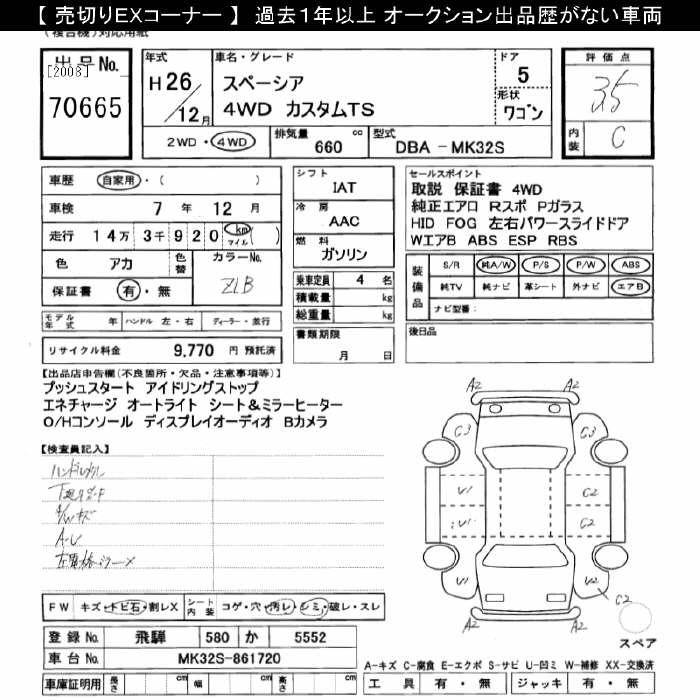 【 売切りEXコーナー 】 過去1年以上 オークション出品歴がない車両
(複合機)対応用紙
出品No.
[2008]
70665
年式
H 26
12月
車名・グレード
スペーシア
4WD カスタムTS
ドア
5
形状
ワゴン
評価点
3.5
内装
C
2WD・4WD
排気量 660 cc
型式 DBA - MK32S
車歴 自家用・( )
車検 7 年 12 月
走行 14万 3千 920 km マイル ( )
色 アカ
色替
カラーNo.
ZLB
保証書 有・無
モデル年式 年 ハンドル 左・右 ディーラー・並行
リサイクル料金 9,770 円 預託済
シフト
IAT
冷房
AAC
燃料
ガソリン
乗車定員 4 名
積載量 kg
総重量 kg
書類期限
月 日
セールスポイント
取説 保証書 4WD
純正エアロ Rスポ Pガラス
HID FOG 左右パワースライドドア
WエアB ABS ESP RBS
装備品
S/R 純A/W P/S P/W ABS
純TV 純ナビ 革シート 外ナビ エアB
ナビ型番:
後日品
【出品店申告欄(不良箇所・欠品・注意事項等)】
プッシュスタート アイドリングストップ
エネチャージ オートライト シート&ミラーヒーター
O/Hコンソール ディスプレイオーディオ Bカメラ
【検査員記入】
A/Wキズ
A2
A2
G3
C3
U1
C2
U1
C2
U1
U2
C2
A2
A2
スペア
FW キズ・トビ石・割レX
シート内装 コゲ・穴・汚レ・シミ・破レ・スレ
登録No. 飛騨 580 か 5552
車台No. MK32S-861720
車庫証明用 長さ cm 幅 cm 高さ cm
A-キズ C-腐食 E-エクボ S-サビ U-凹ミ W-補修 XX-交換済
工具 有・無 ジャッキ 有・無